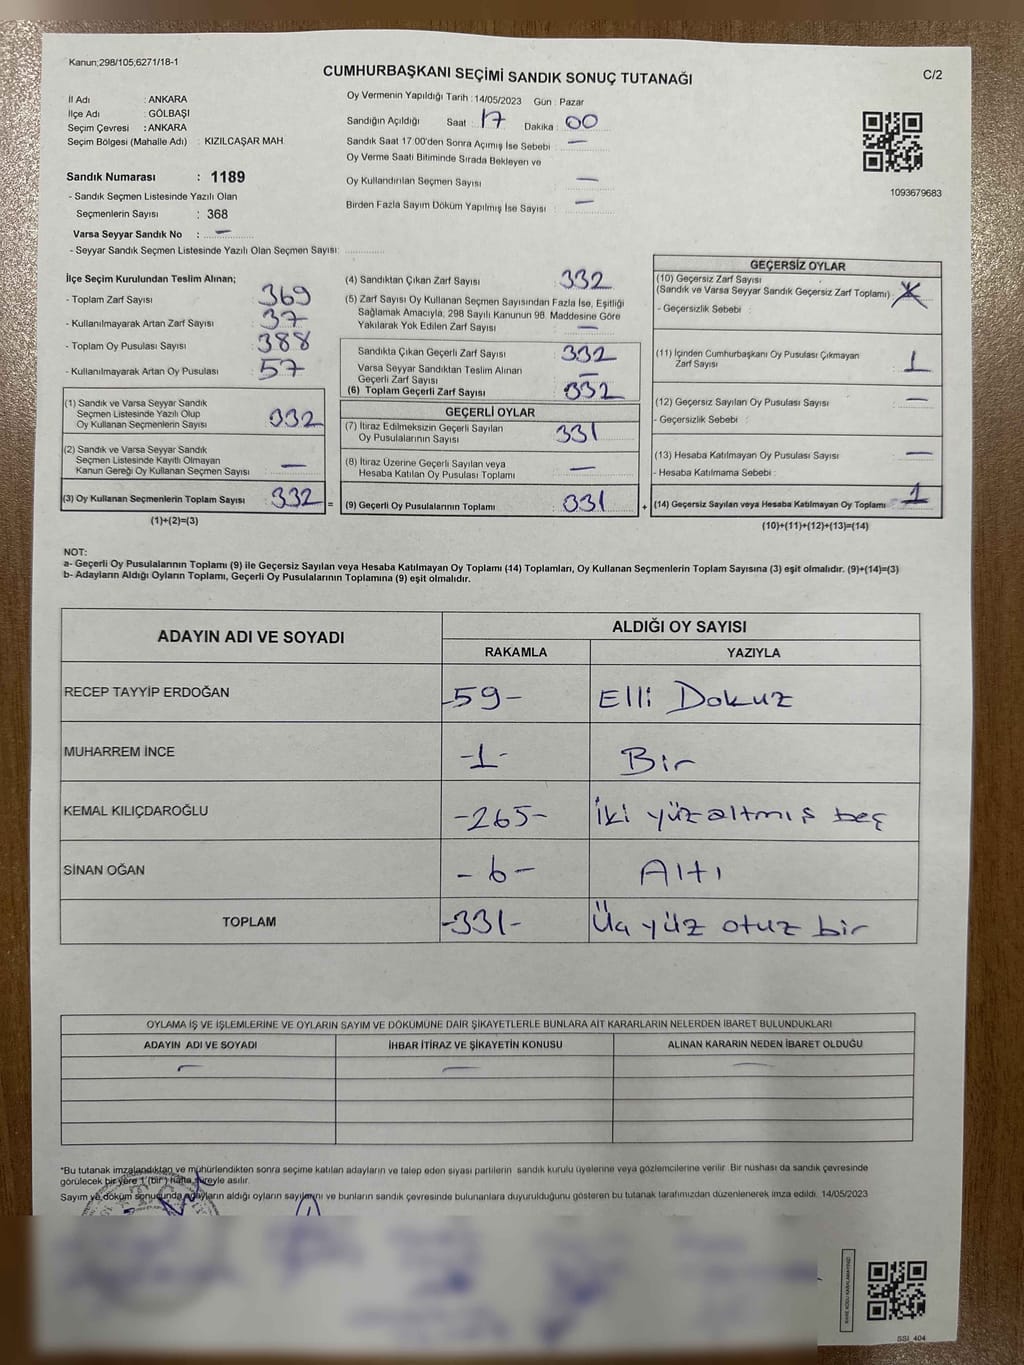 Kanun;298/105;6271/18-1
CUMHURBAŞKANI SEÇİMİ SANDIK SONUÇ TUTANAĞI
C/2
İl Adı : ANKARA
İlçe Adı : GÖLBAŞI
Seçim Çevresi : ANKARA
Seçim Bölgesi (Mahalle Adı) : KIZILCAŞAR MAH
Sandık Numarası : 1189
- Sandık Seçmen Listesinde Yazılı Olan
Seçmenlerin Sayısı : 368
Varsa Seyyar Sandık No : —
- Seyyar Sandık Seçmen Listesinde Yazılı Olan Seçmen Sayısı:
Oy Vermenin Yapıldığı Tarih : 14/05/2023 Gün : Pazar
Sandığın Açıldığı Saat : 17 Dakika : 00
Sandık Saat 17:00'den Sonra Açımış İse Sebebi : —
Oy Verme Saati Bitiminde Sırada Bekleyen ve
Oy Kullandırılan Seçmen Sayısı : —
Birden Fazla Sayım Döküm Yapılmış İse Sayısı : —
1093679683
İlçe Seçim Kurulundan Teslim Alınan;
- Toplam Zarf Sayısı : 369
- Kullanılmayarak Artan Zarf Sayısı : 37
- Toplam Oy Pusulası Sayısı : 388
- Kullanılmayarak Artan Oy Pusulası : 57
(1) Sandık ve Varsa Seyyar Sandık
Seçmen Listesinde Yazılı Olup
Oy Kullanan Seçmenlerin Sayısı : 332
(2) Sandık ve Varsa Seyyar Sandık
Seçmen Listesinde Kayıtlı Olmayan
Kanun Gereği Oy Kullanan Seçmen Sayısı : —
(3) Oy Kullanan Seçmenlerin Toplam Sayısı : 332 =
(1)+(2)=(3)
(4) Sandıktan Çıkan Zarf Sayısı : 332
(5) Zarf Sayısı Oy Kullanan Seçmen Sayısından Fazla İse, Eşitliği
Sağlamak Amacıyla, 298 Sayılı Kanunun 98. Maddesine Göre
Yakılarak Yok Edilen Zarf Sayısı : —
Sandıkta Çıkan Geçerli Zarf Sayısı : 332
Varsa Seyyar Sandıktan Teslim Alınan
Geçerli Zarf Sayısı : —
(6) Toplam Geçerli Zarf Sayısı : 332
GEÇERLİ OYLAR
(7) İtiraz Edilmeksizin Geçerli Sayılan
Oy Pusulalarının Sayısı : 331
(8) İtiraz Üzerine Geçerli Sayılan veya
Hesaba Katılan Oy Pusulası Toplamı : —
(9) Geçerli Oy Pusulalarının Toplamı : 331 +
GEÇERSİZ OYLAR
(10) Geçersiz Zarf Sayısı
(Sandık ve Varsa Seyyar Sandık Geçersiz Zarf Toplamı) :
- Geçersizlik Sebebi :
(11) İçinden Cumhurbaşkanı Oy Pusulası Çıkmayan
Zarf Sayısı : 1
(12) Geçersiz Sayılan Oy Pusulası Sayısı : —
- Geçersizlik Sebebi :
(13) Hesaba Katılmayan Oy Pusulası Sayısı : —
- Hesaba Katılmama Sebebi :
(14) Geçersiz Sayılan veya Hesaba Katılmayan Oy Toplamı : 1
(10)+(11)+(12)+(13)=(14)
NOT:
a- Geçerli Oy Pusulalarının Toplamı (9) ile Geçersiz Sayılan veya Hesaba Katılmayan Oy Toplamı (14) Toplamları, Oy Kullanan Seçmenlerin Toplam Sayısına (3) eşit olmalıdır. (9)+(14)=(3)
b- Adayların Aldığı Oyların Toplamı, Geçerli Oy Pusulalarının Toplamına (9) eşit olmalıdır.
ADAYIN ADI VE SOYADI ALDIĞI OY SAYISI
RAKAMLA YAZIYLA
RECEP TAYYİP ERDOĞAN -59- Elli Dokuz
MUHARREM İNCE -1- Bir
KEMAL KILIÇDAROĞLU -265- İki yüz altmış beş
SİNAN OĞAN -6- Altı
TOPLAM -331- Üç yüz otuz bir
OYLAMA İŞ VE İŞLEMLERİNE VE OYLARIN SAYIM VE DÖKÜMÜNE DAİR ŞİKAYETLERLE BUNLARA AİT KARARLARIN NELERDEN İBARET BULUNDUKLARI
ADAYIN ADI VE SOYADI İHBAR İTİRAZ VE ŞİKAYETİN KONUSU ALINAN KARARIN NEDEN İBARET OLDUĞU
— — —
*Bu tutanak imzalandıktan ve mühürlendikten sonra seçime katılan adayların ve talep eden siyasi partilerin sandık kurulu üyelerine veya gözlemcilerine verilir. Bir nüshası da sandık çevresinde
görülecek bir yere 1 (bir) hafta süreyle asılır.
Sayım ve döküm sonucunda adayların aldığı oyların sayılarını ve bunların sandık çevresinde bulunanlara duyurulduğunu gösteren bu tutanak tarafımızdan düzenlenerek imza edildi. 14/05/2023
SSİ_404